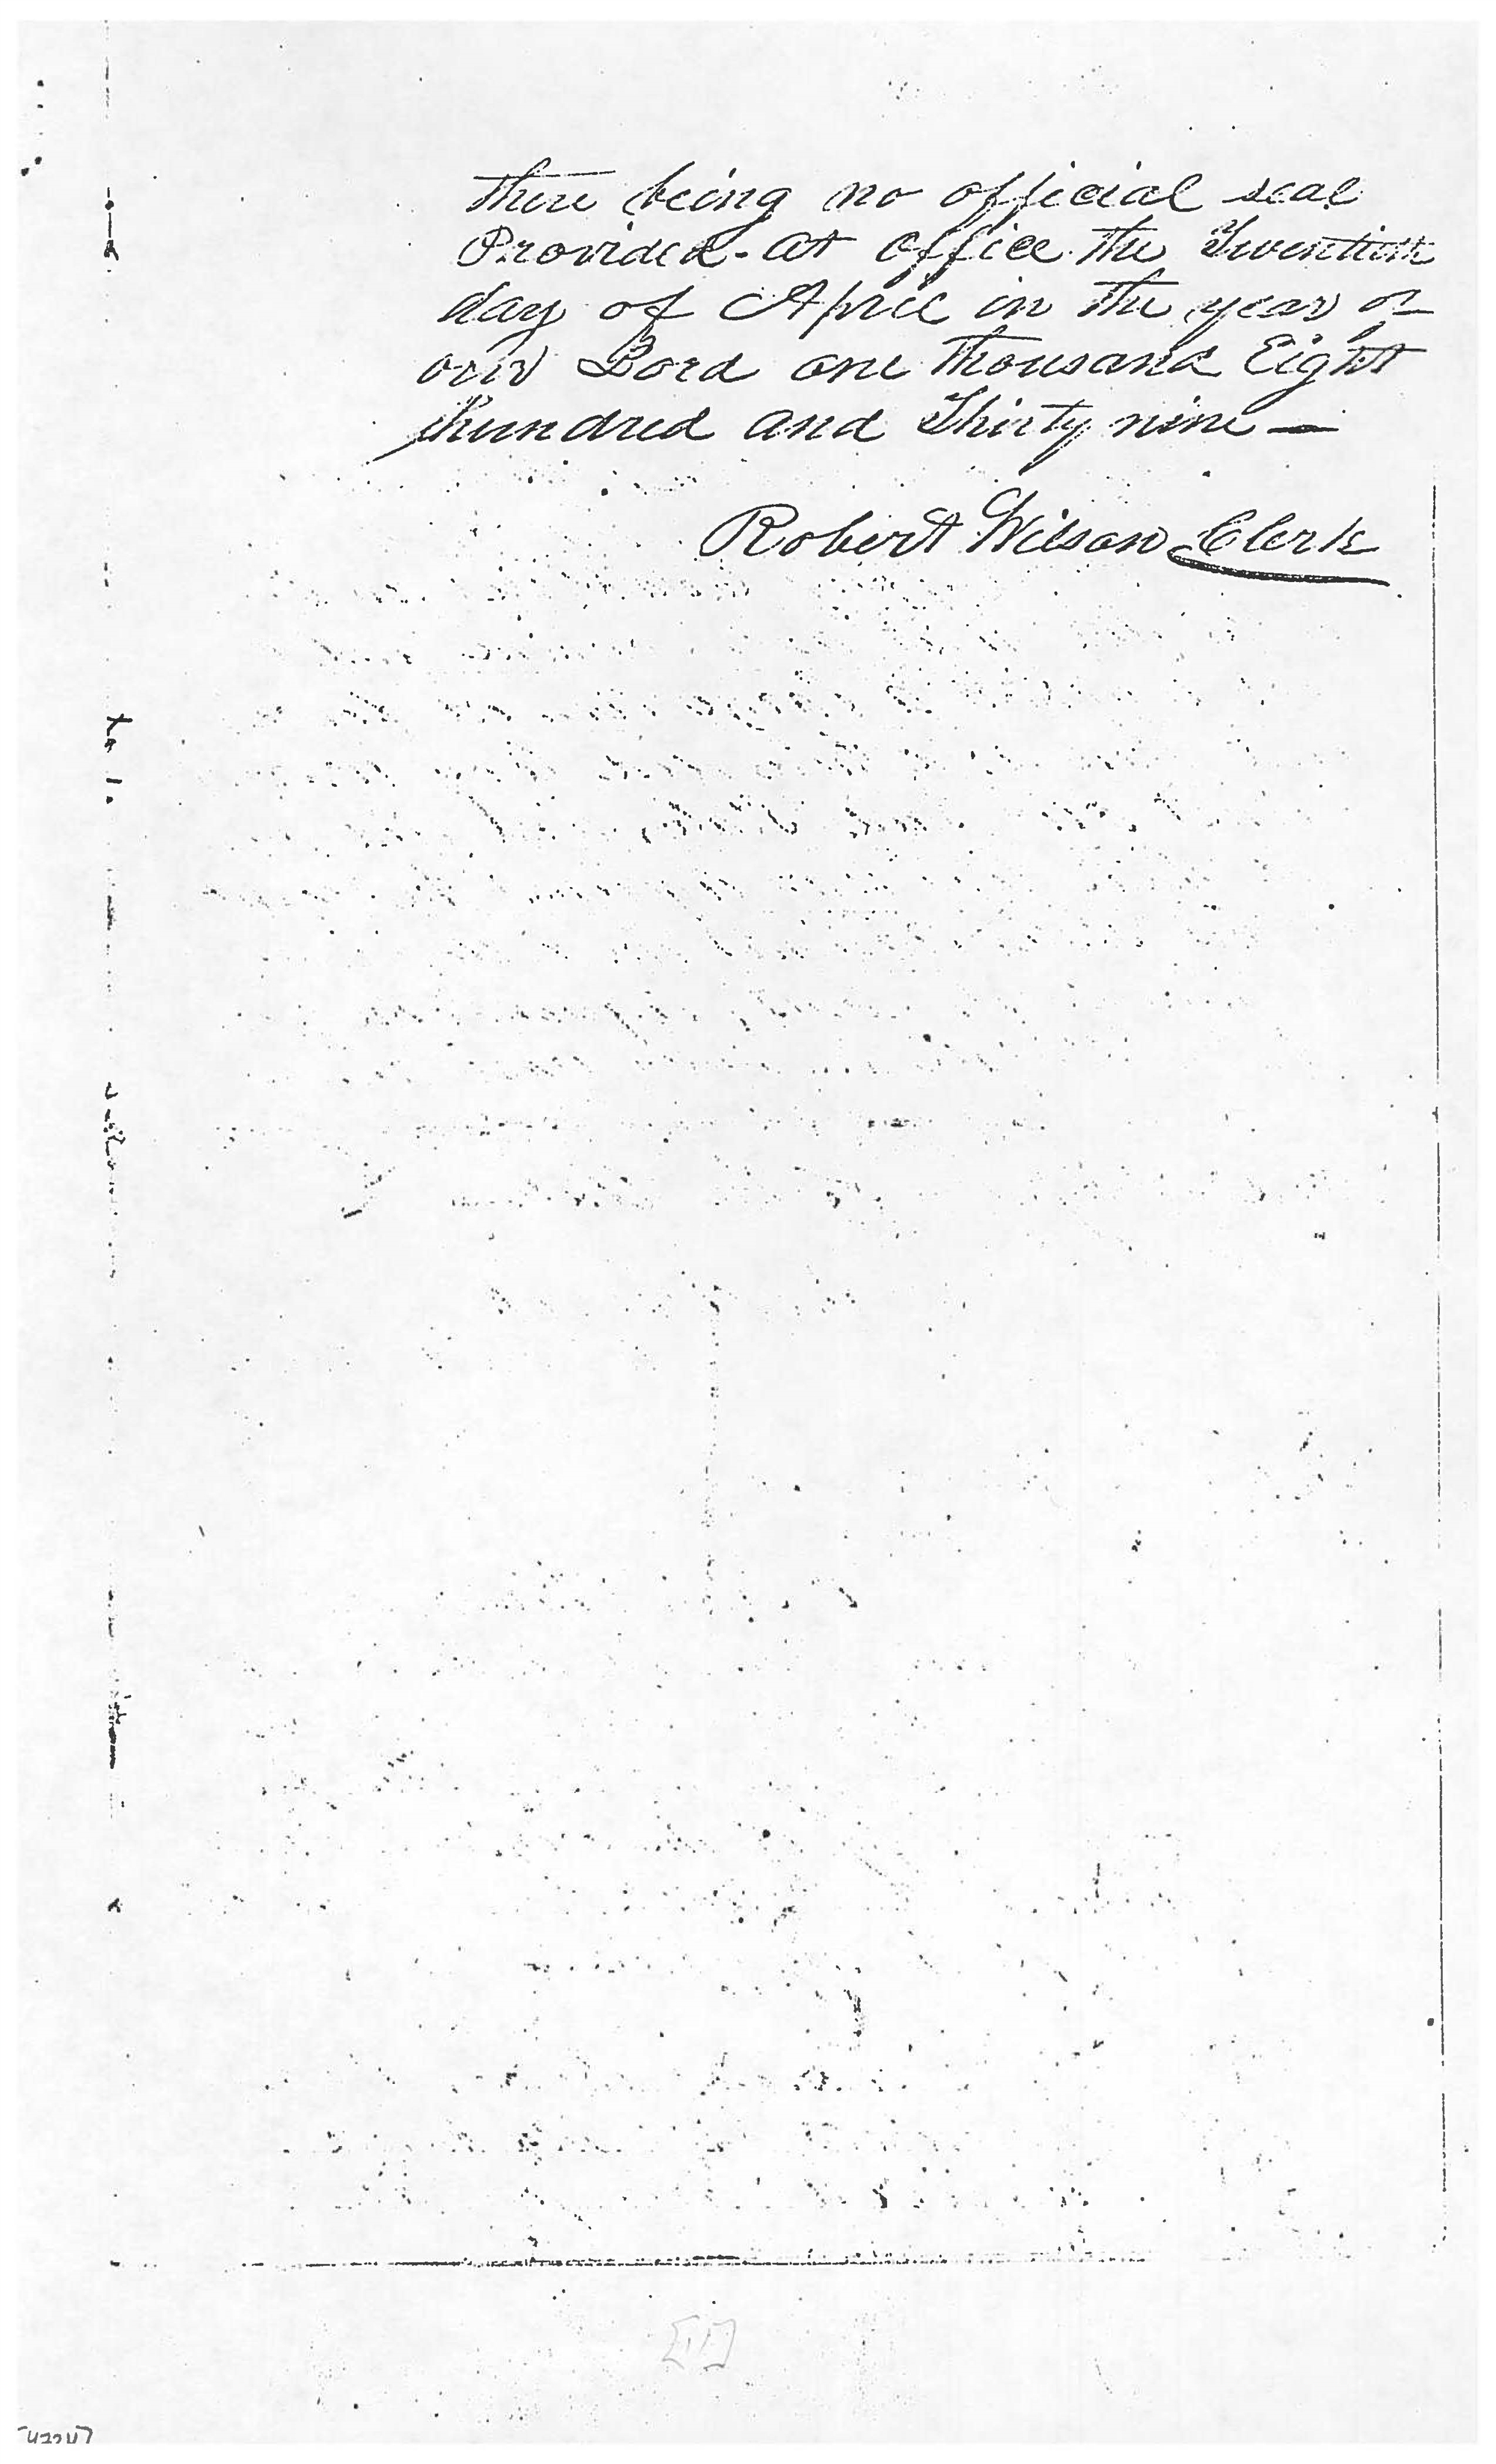 there being no official seal
Provided - at office the Twentieth
day of April in the year of
our Lord one thousand Eight
hundred and Thirty nine —
Robert Wilson Clerk
[11]